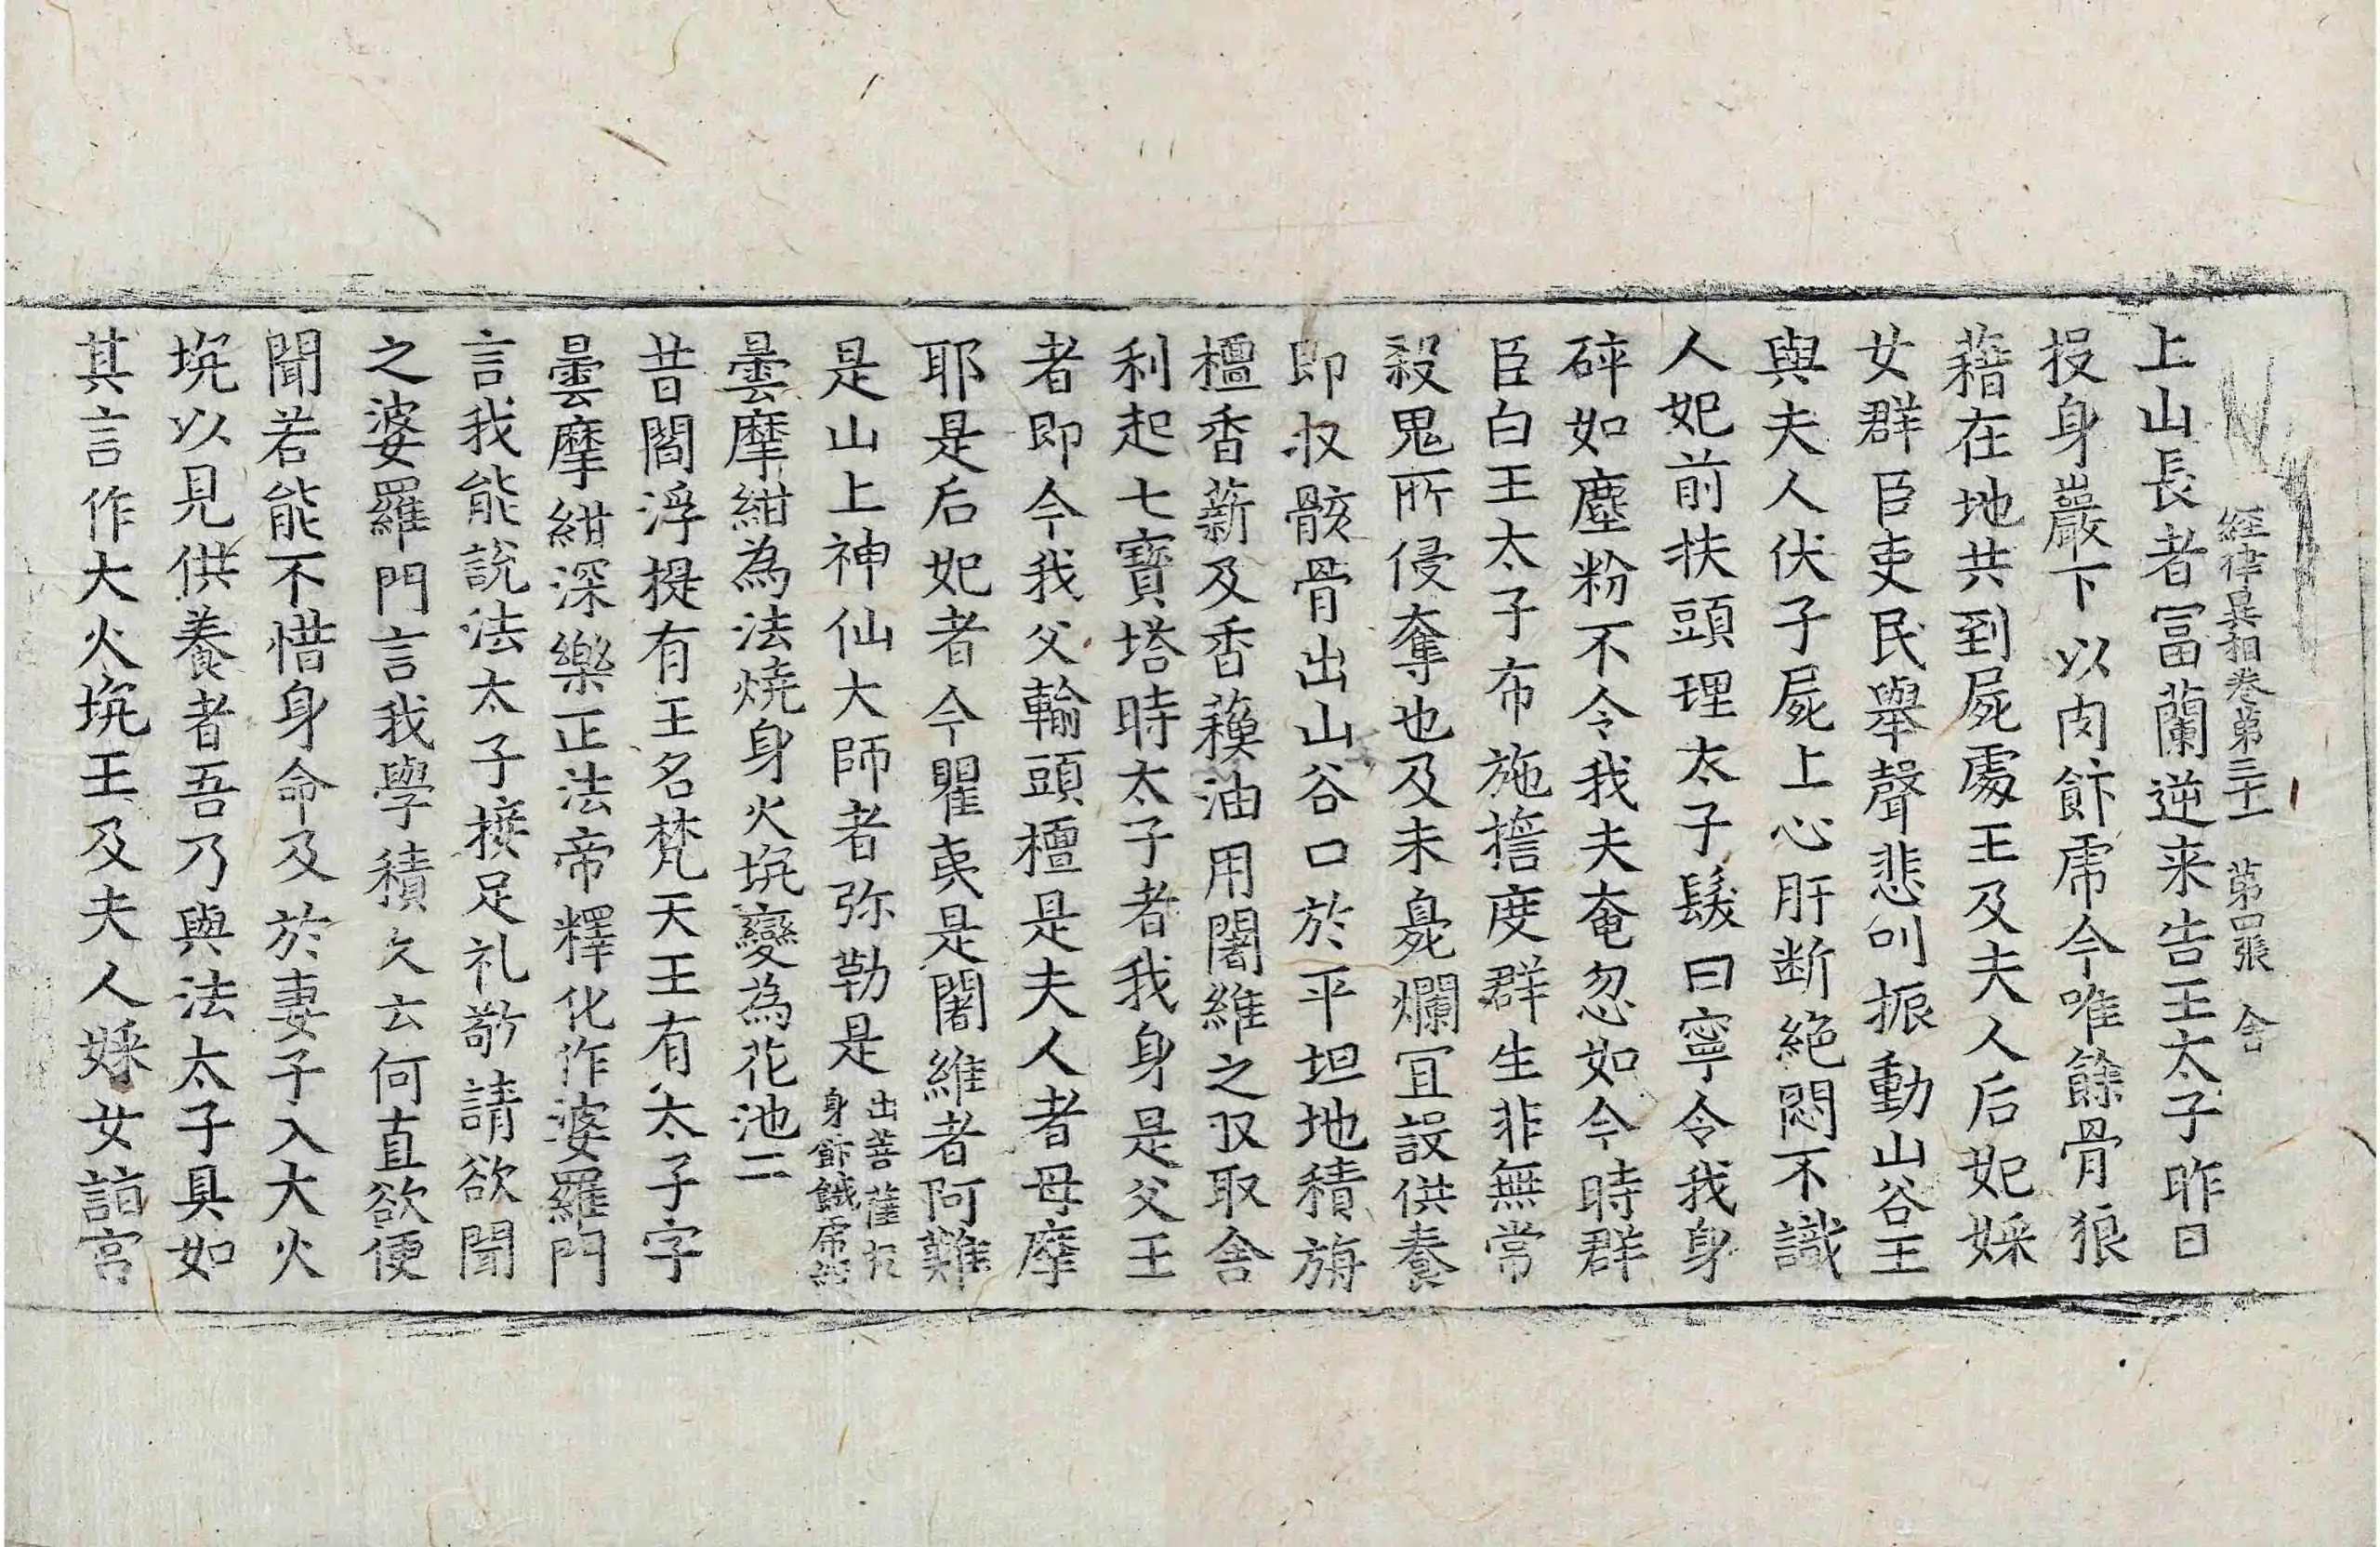 経律異相卷第三十一　第四張　舍
上山長者冨蘭逆来告王太子昨日
投身巖下以肉飴虎今唯餘骨狼
藉在地共到屍處王及夫人后妃婇
女群臣吏民舉聲悲叫振動山谷王
與夫人伏子屍上心肝断絶悶不識
人妃前扶頭理太子髮曰寧令我身
碎如塵粉不令我夫奄忽如今時群
臣白王太子布施擔度群生非無常
殺鬼所侵奪也及未臰爛冝設供養
即収骸骨出山谷口於平坦地積旃
檀香薪及香蘓油用闍維之収取舍
利起七寶塔時太子者我身是父王
者即今我父輸頭檀是夫人者母摩
耶是后妃者今瞿夷是闍維者阿難
是山上神仙大師者弥勒是出菩薩投
身飴餓虎經
曇摩紺為法燒身火坑變為花池二
昔閻浮提有王名梵天王有太子字
曇摩紺深樂正法帝釋化作婆羅門
言我能說法太子接足礼敬請欲聞
之婆羅門言我學積久云何直欲便
聞若能不惜身命及於妻子入大火
坑以見供養者吾乃與法太子具如
其言作大火坑王及夫人婇女詣宮